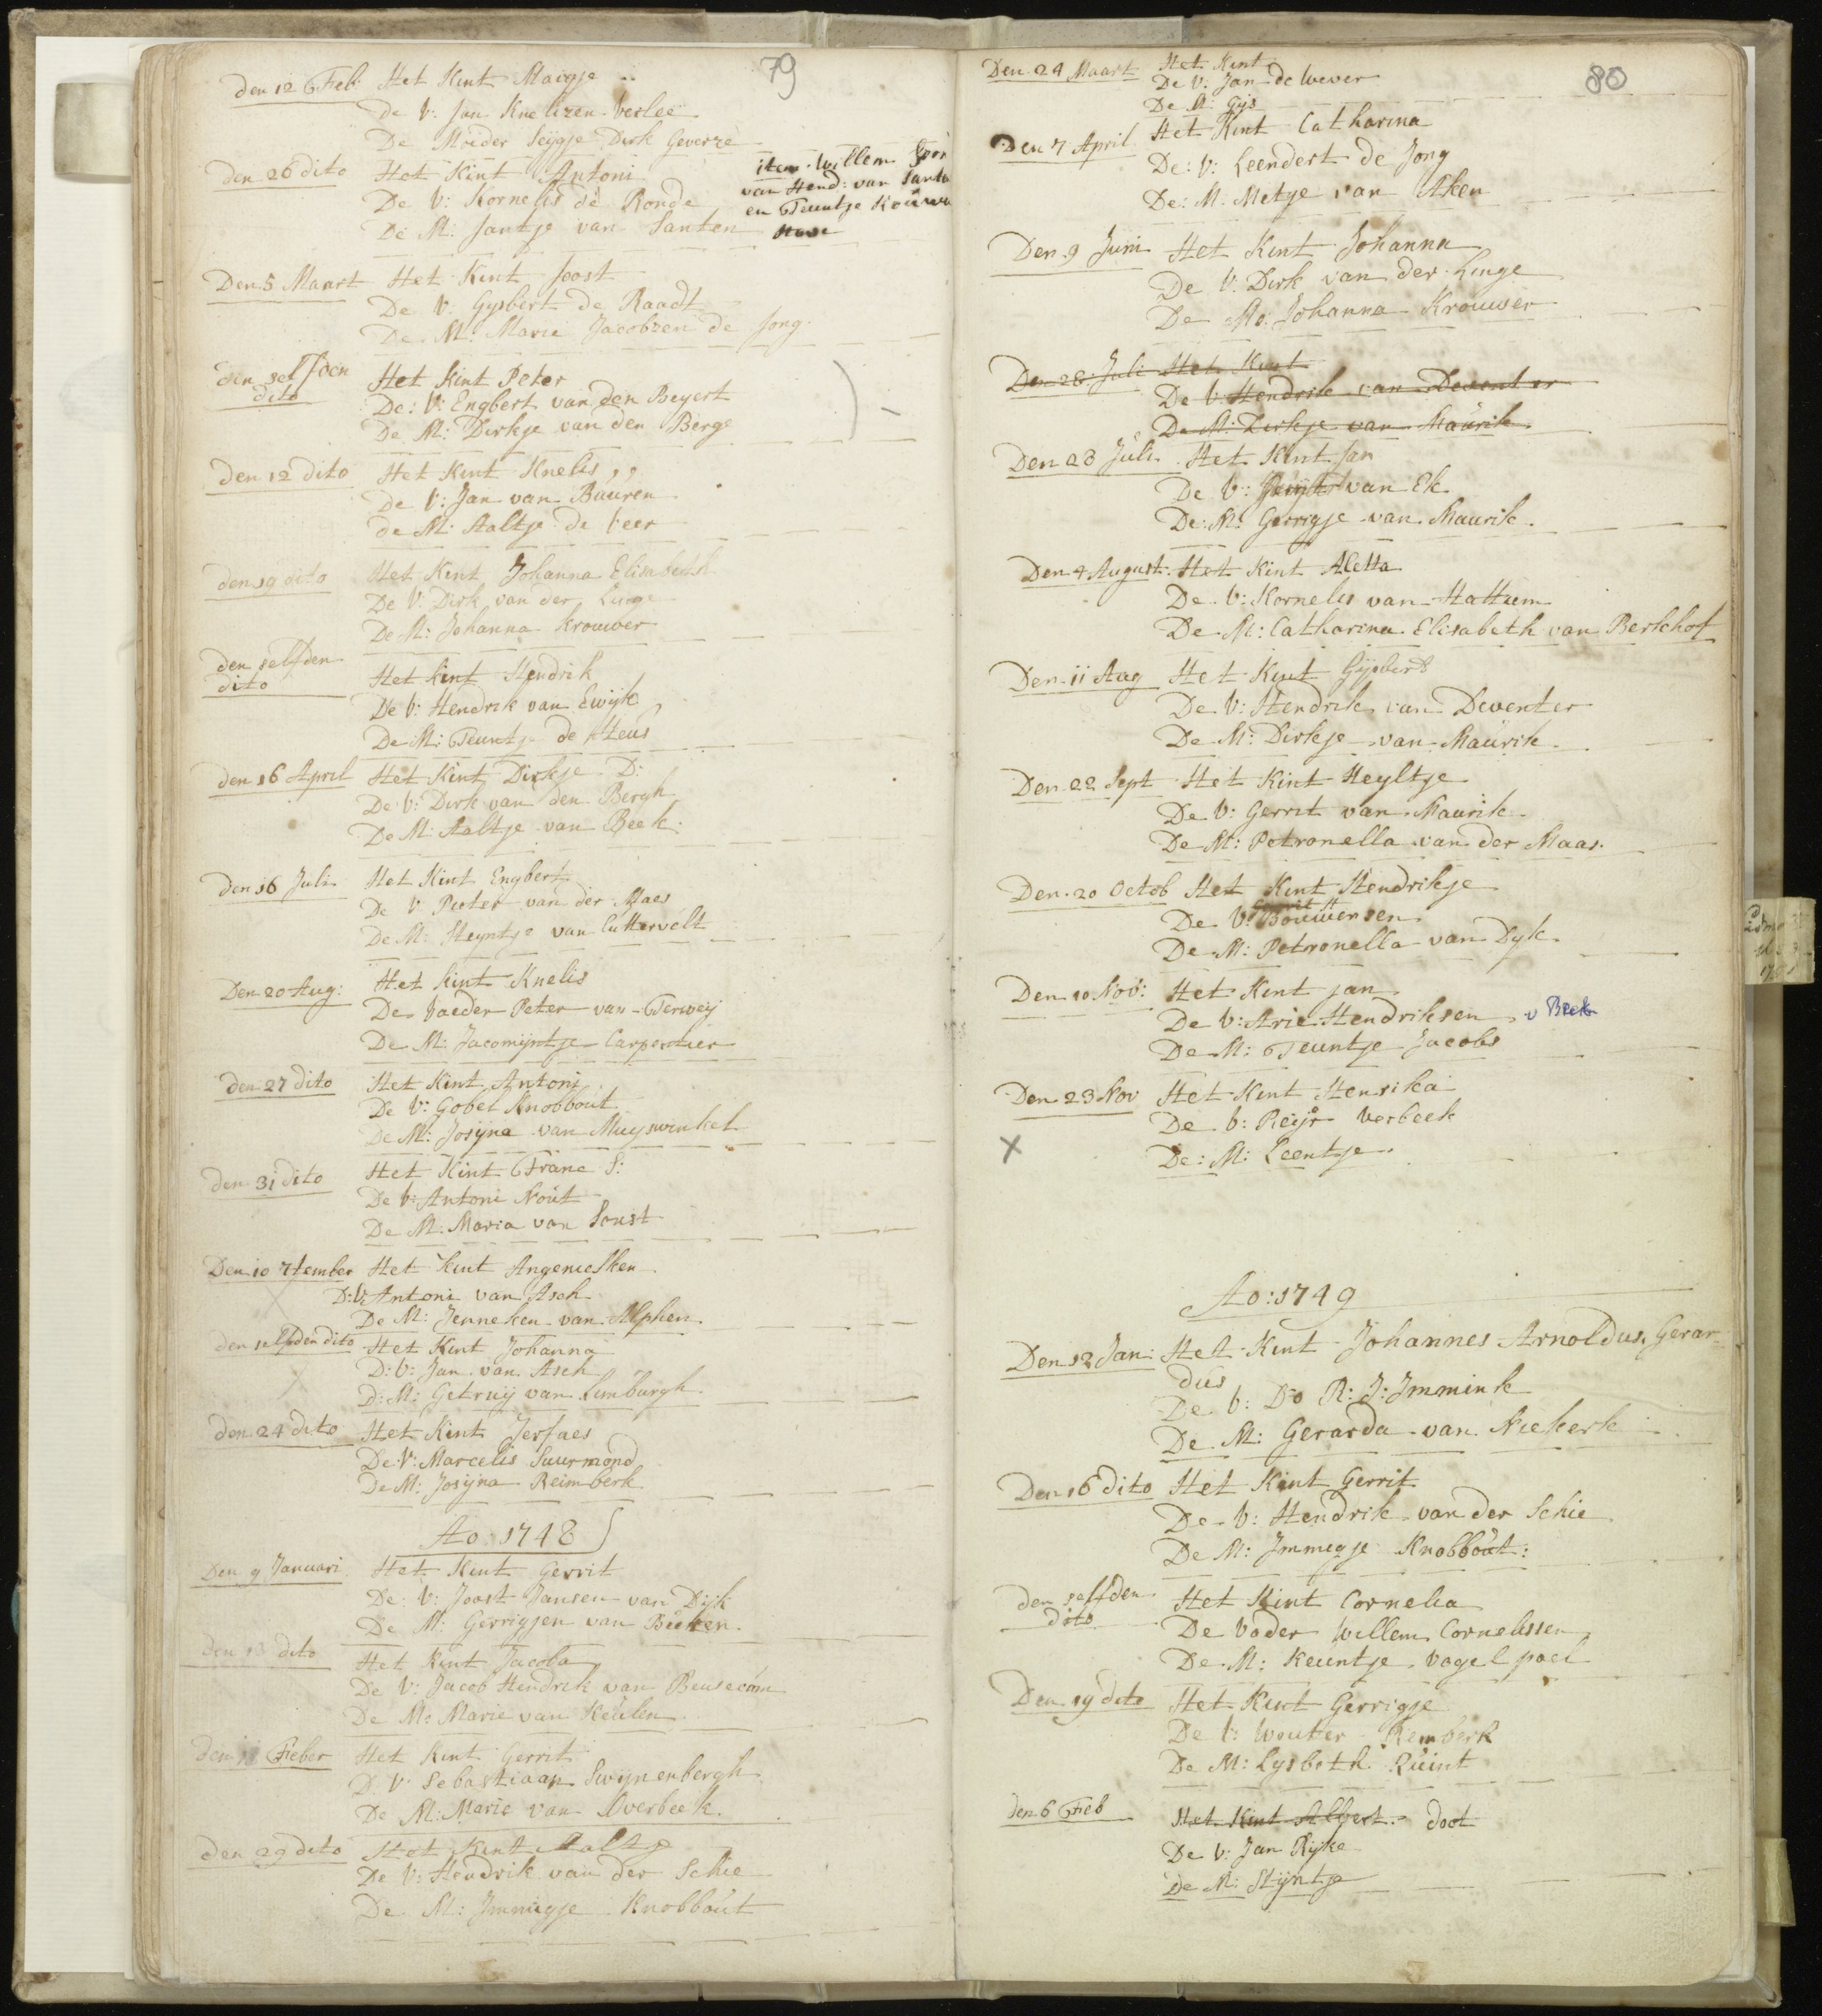 79
den 12 Feb: Het Kint Maigje
De V: Jan Knelizen Verlee
De Moeder Seijgje Dirk Geverze
den 26 dito Het Kint Antoni
De V: Kornelis de Ronde
De M: Jantje van Santen
item Willem
van Hend: van Sant
en Teuntje
Den 5 Maart Het Kint Joost
De V: Gysbert de Raadt
De M: Marie Jacobzen de Jong
den selfden dito Het Kint Peter
De: V: Engbert van den Beyert
De M: Dirkje van den Berge
den 12 dito Het Kint Knelis
De V: Jan van Buuren
de M: Aaltje de Veer
den 19 dito Het Kint Johanna Elisabeth
De V: Dirk van der Linge
De M: Johanna Krouwer
den selfden dito Het Kint Hendrik
De V: Hendrik van Ewijk
De M: Teuntje de Heus
den 16 April Het Kint Dirkje D:
De V: Dirk van den Bergh
De M: Aaltje van Beek
den 16 Juli Het Kint Engbert
De V Peeter van der Maes
De M: Steyntje van Cuttervelt
Den 20 Aug: Het Kint Knelis
De Vaeder Peter van Terweij
De M: Jacomijntje Carpentier
den 27 dito Het Kint Antoni
De V: Gobel Knobbout
De M: Josijna van Muyswinkel
den 31 dito Het Kint Frans S:
De V: Antoni Nout
De M: Maria van Soust
Den 10 7tember Het Kint Angeniesken
D: V: Antoni van Asch
De M: Jenneken van Alphen
den selfden dito Het Kint Johanna
D: V: Jan van Asch
D: M: Getruij van Limburgh
den 24 dito Het Kint Jerfaes
De V: Marcelis Suurmond
De M: Josijna Reimberk
Ao: 1748
Den 9 Januari Het Kint Gerrit
De V: Joost Jansen van Dijk
De M: Gerrigjen van Beeken
den 13 dito Het Kint Jacoba
De V: Jacob Hendrik van Beusecom
De M: Marie van Keulen
den 11 Feber Het Kint Gerrit
D V: Sebastiaan Swijnenbergh
De M: Marie van Overbeek
den 29 dito Het Kint Aaltje
De V: Hendrik van der Schie
De M: Immigje Knobbout
80
Den 24 Maart Het Kint
De V: Jan de Wever
De M: Gijs
Den 7 April Het Kint Catharina
De: V: Leendert de Jong
De: M: Metje van Aken
Den 9 Juni Het Kint Johanna
De V: Dirk van der Linge
De Mo: Johanna Krouwer
Den 28 Juli Het Kint
De V: Hendrik van Deventer
De M: Dirkje van Maurik
Den 28 Juli Het Kint Jan
De V: van Ek
De: M: Gerrigje van Maurik
Den 4 August. Het Kint Aletta
De V: Kornelis van Hattum
De M: Catharina Elisabeth van Berkhof
Den 11 Aug Het Kint Gijsbert
De V: Hendrik van Deventer
De M: Dirkje van Maurik
Den 22 Sept Het Kint Heyltje
De V: Gerrit van Maurik
De M: Petronella van der Maas
Den 20 Octob Het Kint Hendrikje
De V: Gerrit H Bouwensen
De M: Petronella van Dyk
Den 10 Nov: Het Kint jan
De V: Arie Hendriksen v Beek
De M: Teuntje Jacobs
Den 23 Nov Het Kint Hensika
De V: Reijr Verbeek
X De: M: Leentje
Ao: 1749
Den 12 Jan: Het Kint Johannes Arnoldus, Gerar-
dus
De V: Do R: J: Immink
De M: Gerarda van Niekerk
Den 16 dito Het Kint Gerrit
De V: Hendrik van der Schie
De M: Immegje Knobbout:
den selfden dito Het Kint Cornelia
De Vader Willem Cornelissen
De M: Keuntje Vogelpoel
Den 19 dito Het Kint Gerrigje
De V: Wouter Remberk
De M: Lysbeth Ruint
den 6 Feb Het Kint Albert doot
De V: Jan Rijke
De M: Stijntje